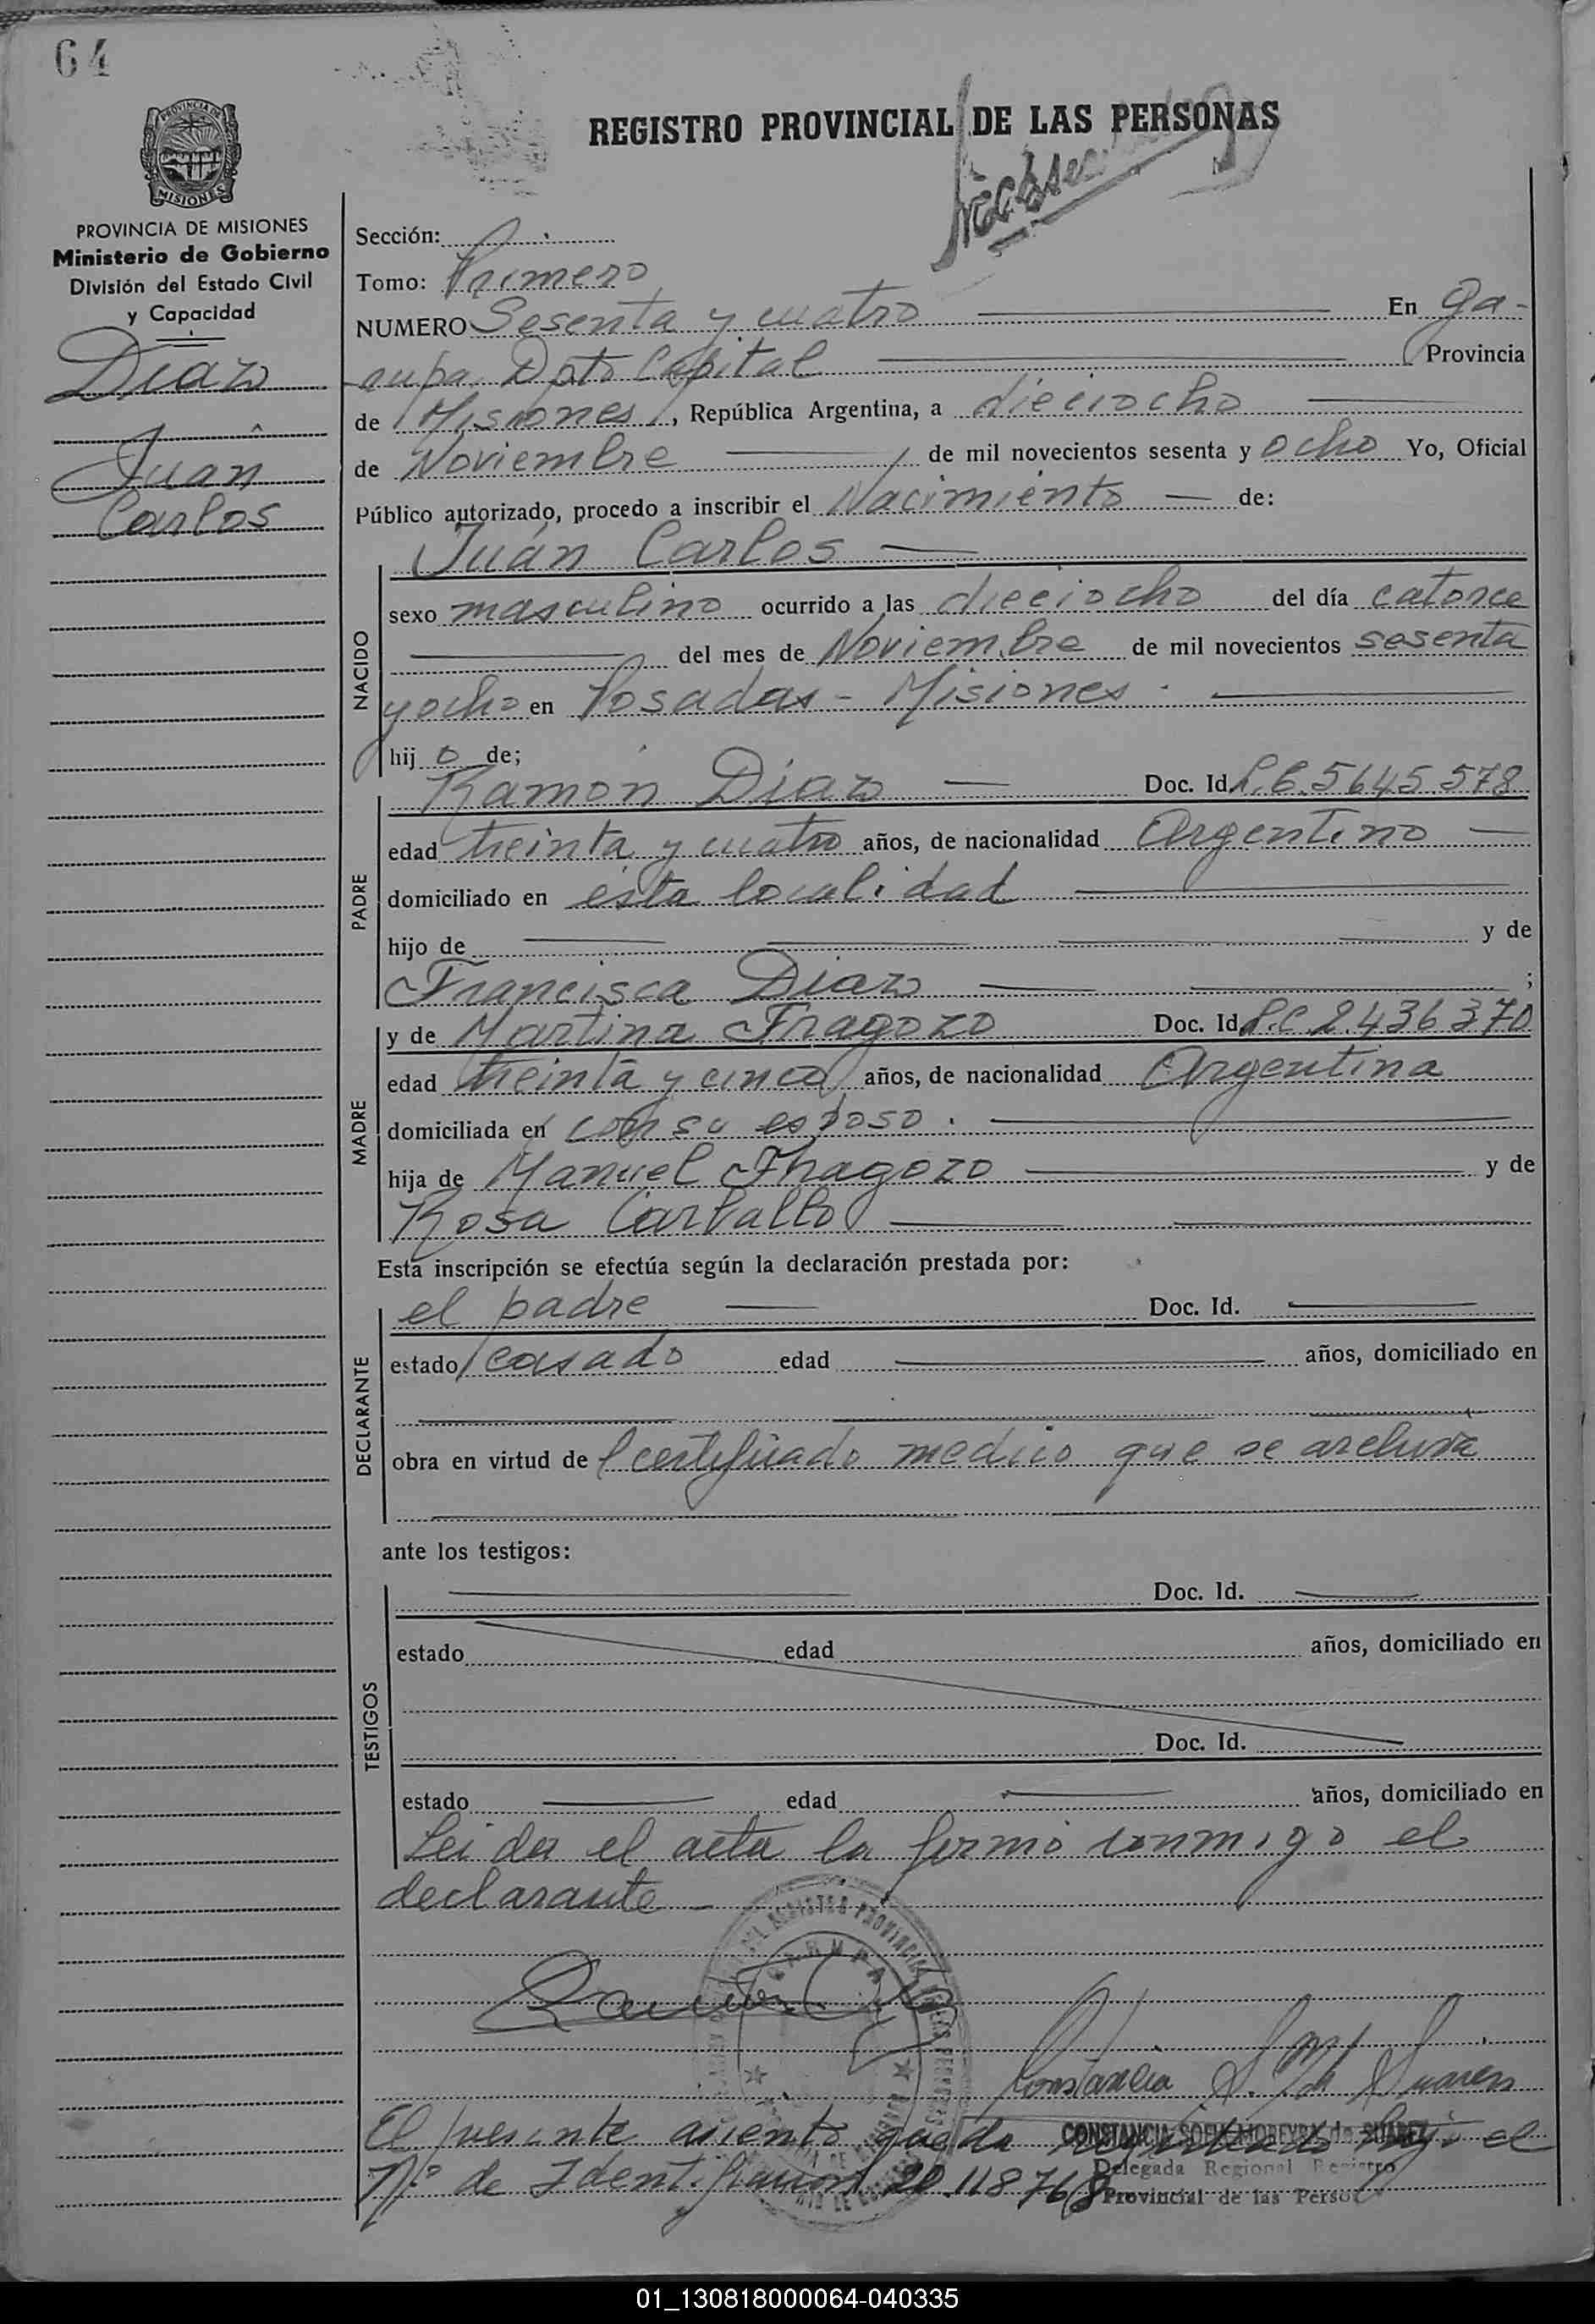 64
REGISTRO PROVINCIAL DE LAS PERSONAS
PROVINCIA DE
MISIONES
PROVINCIA DE MISIONES
Ministerio de Gobierno
División del Estado Civil
y Capacidad
Diaz
Juan
Carlos
Sección:
Tomo: Primero
NUMERO Sesenta y cuatro En Ga-
rupa Dpto Capital Provincia
de Misiones, República Argentina, a dieciocho
de Noviembre de mil novecientos sesenta y ocho Yo, Oficial
Público autorizado, procedo a inscribir el Nacimiento de:
NACIDO
Juán Carlos
sexo masculino ocurrido a las dieciocho del día catorce
del mes de Noviembre de mil novecientos sesenta
y ocho en Posadas - Misiones.
hij o de;
PADRE
Ramón Diaz Doc. Id. L.E. 5645578
edad treinta y cuatro años, de nacionalidad Argentino
domiciliado en ésta localidad
hijo de y de
Francisca Diaz ;
MADRE
y de Martina Fragozo Doc. Id. L.C 2.436370
edad treinta y cinco años, de nacionalidad Argentina
domiciliada en con su esposo.
hija de Manuel Fragozo y de
Rosa Carballo
Esta inscripción se efectúa según la declaración prestada por:
DECLARANTE
el padre Doc. Id.
estado casado edad años, domiciliado en
obra en virtud de certificado medico que se archiva
ante los testigos:
TESTIGOS
Doc. Id.
estado edad años, domiciliado en
Doc. Id.
estado edad años, domiciliado en
Leida el acta la firmó conmigo el
declarante -
GARUPA
Constancia S. M. de Suarez
CONSTANCIA SOFIA MOREYRA de SUAREZ
Delegada Regional Registro
Provincial de las Perso
El presente asiento queda bajo el
Nº de Identificacion 20.118768
01_130818000064-040335